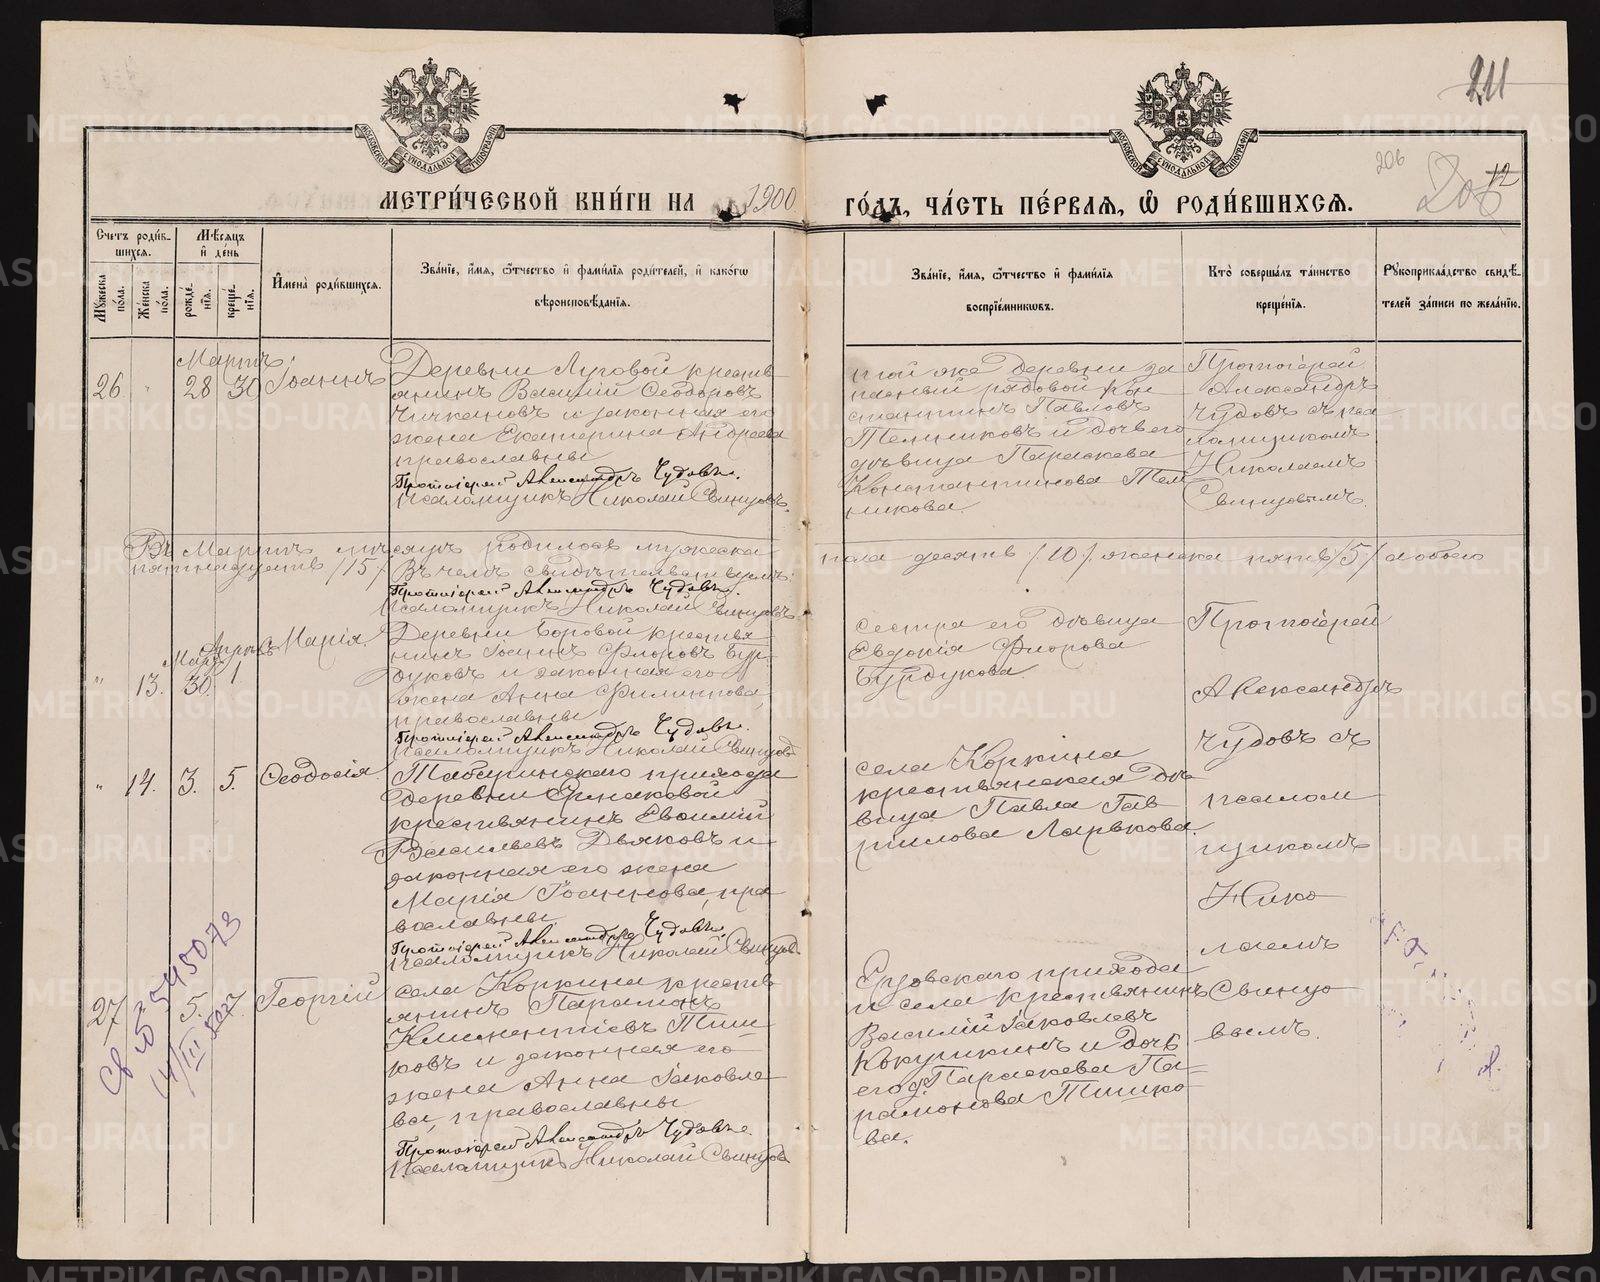 211
206
206
12
МОСКОВСКОЙ СУНОДАЛЬНОЙ ТИПОГРАФІИ
МОСКОВСКОЙ СУНОДАЛЬНОЙ ТИПОГРАФІИ
МЕТРИ́ЧЕСКОЙ КНИ́ГИ НА 1900 ГО́ДЪ, ЧА́СТЬ ПЕ́РВАЯ, Ѡ РОДИ́ВШИХСЯ.
Счетъ роди́в-
шихся.
Мꙋжеска по́ла.
Же́нска по́ла.
Мѣ́сяцъ
и҆ де́нь
рожде́-
нїя.
креще́-
нїя.
И҆мена̀ роди́вшихся.
Зва́нїе, и҆́мя, ѻ҆́тчество и҆ фами́лїя роди́телей, и҆ како́гѡ
вѣроисповѣ́данїя.
Зва́нїе, и҆́мя, ѻ҆́тчество и҆ фами́лїя
воспрїе́мникѡвъ.
Кто̀ соверша́лъ та́инство
креще́нїя.
Рꙋкоприкла́дство свидѣ́-
телей за́писи по жела́нїю.
Мартъ
26 " 28 30 Іоаннъ
Деревни Луговой крестья
янинъ Василій Ѳеодоровъ
Чичкановъ и законная его
жена Екатерина Андреева
православны
Протоіерей Александръ Чудовъ.
Псаломщикъ Николай Свинцовъ.
той же деревни за
пасный рядовой Кон
стантинъ Павловъ
Телниковъ и дочь его
дѣвица Параскева
Константинова Тел
никова.
Протоіерей
Александръ
Чудовъ съ пса
ломщикомъ
Николаемъ
Свинцовымъ.
Въ Мартѣ мѣсяцѣ родилось мужеска пола десять /10/ женска пять /5/ а обоего
пятнадцать /15/ Въ чемъ свидѣтельствуемъ:
Протоіерей Александръ Чудовъ.
Псаломщикъ Николай Свинцовъ
Мар. Апрѣль
" 13. 30 1 Марія.
Деревни Боровой крестья
нинъ Іоаннъ Флоровъ Бур
дуковъ и законная его
жена Анна Филиппова,
православны
Протоіерей Александръ Чудовъ.
Псаломщикъ Николай Свинцовъ
сестра его дѣвица
Евдокія Флорова
Бурдукова.
Протоіерей
Александръ
Чудовъ съ
псалом
щикомъ
Нико
лаемъ
Свинцо
вымъ.
" 14. 3. 5. Ѳеодосія
прихода
деревни
крестьянинъ
Васильевъ Дьяковъ и
законная его жена
Марія Іоаннова, пра
вославны
Протоіерей Александръ Чудовъ.
Псаломщикъ Николай Свинцов.
села Коркина
крестьянская дѣ
вица Павла Гав
рилова Ларькова.
27 5. 7. Георгій
села Коркина кресть
янинъ Парамонъ
Климентіевъ Тиш
ковъ и законная его
жена Анна Іаковле
ва, православны
Протоіерей Александръ Чудовъ.
Псаломщикъ Николай Свинцовъ
прихода
и села крестьянинъ
Василій Іаковлевъ
Кокушкинъ и дочь
его Параскева Па=
рамонова Тишко
ва.